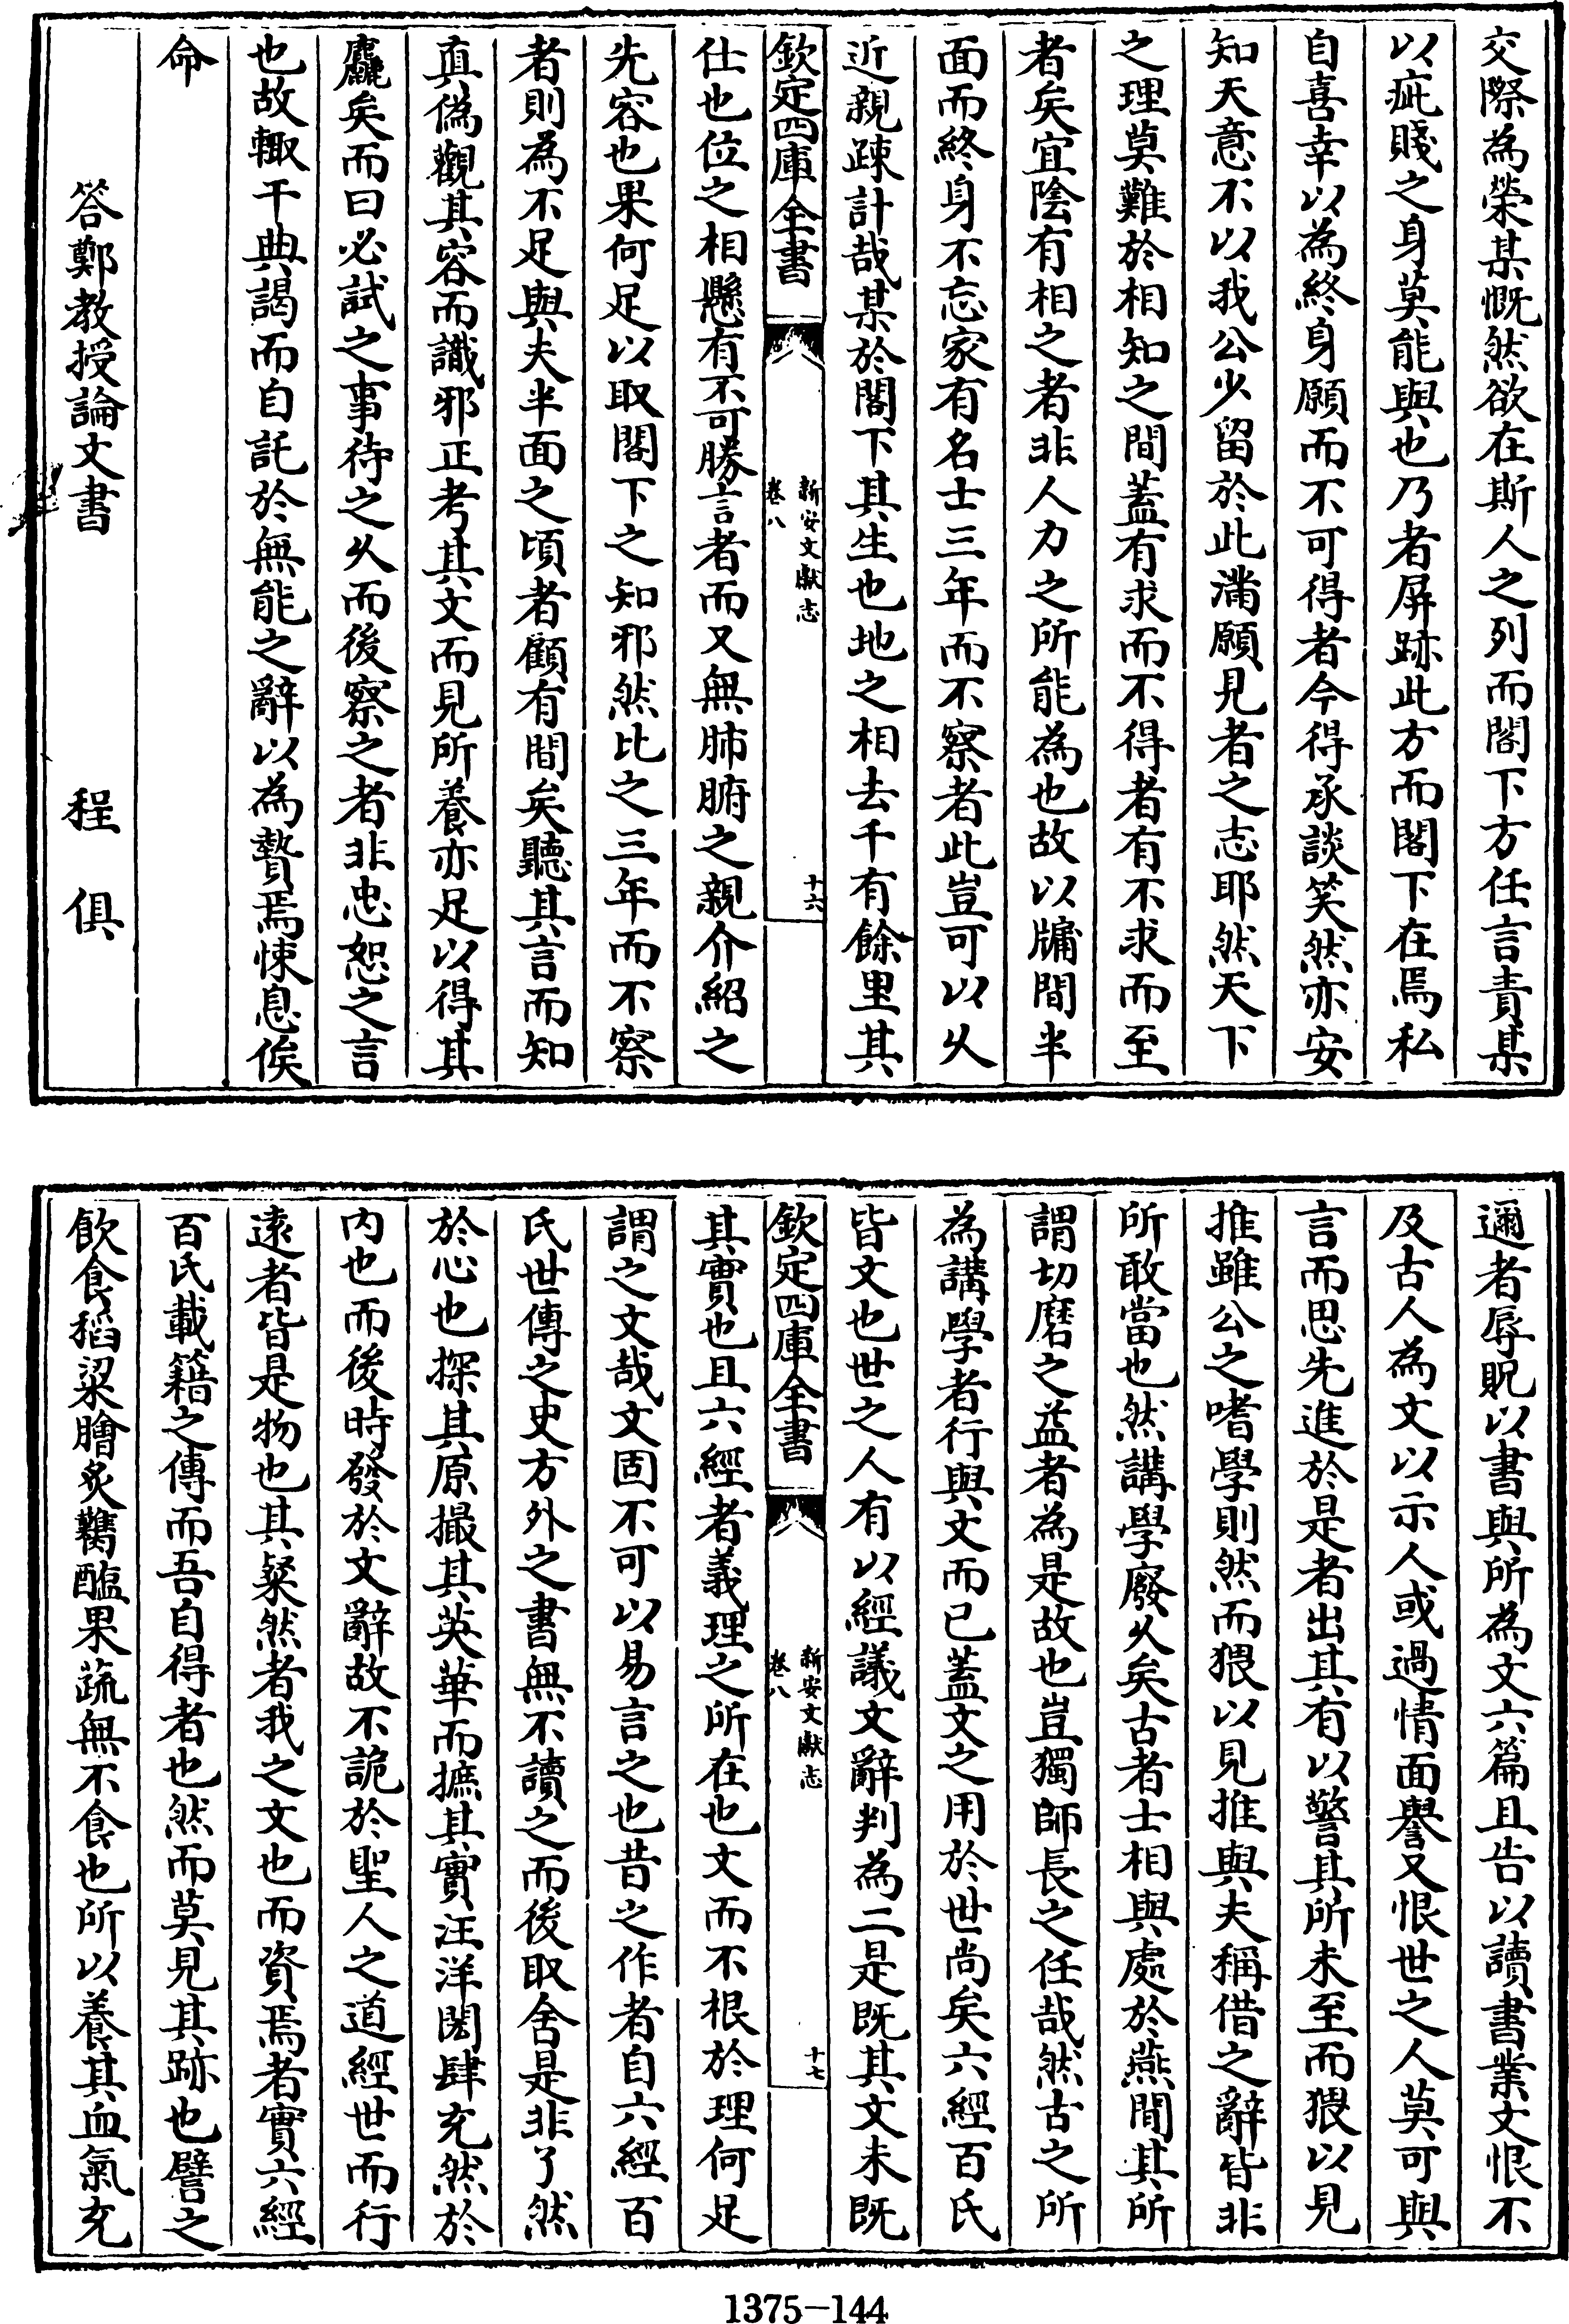 交際為榮某慨然欲在斯人之列而閣下方任言責某
以疵賤之身莫能與也乃者屏跡此方而閣下在焉私
自喜幸以為終身願而不可得者今得承談笑然亦安
知天意不以我公少留於此滿願見者之志耶然天下
之理莫難於相知之間蓋有求而不得者有不求而至
者矣宜陰有相之者非人力之所能為也故以牖間半
面而終身不忘家有名士三年而不察者此豈可以久
近親疎計哉某於閣下其生也地之相去千有餘里其
欽定四庫全書
新安文獻志
卷八
十六
仕也位之相懸有不可勝言者而又無肺腑之親介紹之
先容也果何足以取閣下之知邪然比之三年而不察
者則為不足與夫半面之頃者顧有間矣聽其言而知
真偽觀其容而識邪正考其文而見所養亦足以得其
麤矣而曰必試之事待之久而後察之者非忠恕之言
也故輙干典謁而自託於無能之辭以為贄焉悚息俟
命
答鄭教授論文書 程俱
邇者辱貺以書與所為文六篇且告以讀書業文恨不
及古人為文以示人或過情面譽又恨世之人莫可與
言而思先進於是者出其有以警其所未至而猥以見
推雖公之嗜學則然而猥以見推與夫稱借之辭皆非
所敢當也然講學廢久矣古者士相與處於燕閒其所
謂切磨之益者為是故也豈獨師長之任哉然古之所
為講學者行與文而已蓋文之用於世尚矣六經百氏
皆文也世之人有以經議文辭判為二是既其文未既
欽定四庫全書
新安文獻志
卷八
十七
其實也且六經者義理之所在也文而不根於理何足
謂之文哉文固不可以易言之也昔之作者自六經百
氏世傳之史方外之書無不讀之而後取舍是非了然
於心也探其原撮其英華而摭其實汪洋閎肆充然於
內也而後時發於文辭故不詭於聖人之道經世而行
遠者皆是物也其粲然者我之文也而資焉者實六經
百氏載籍之傳而吾自得者也然而莫見其跡也譬之
飲食稻粱膾炙虀醢果蔬無不食也所以養其血氣充
1375-144